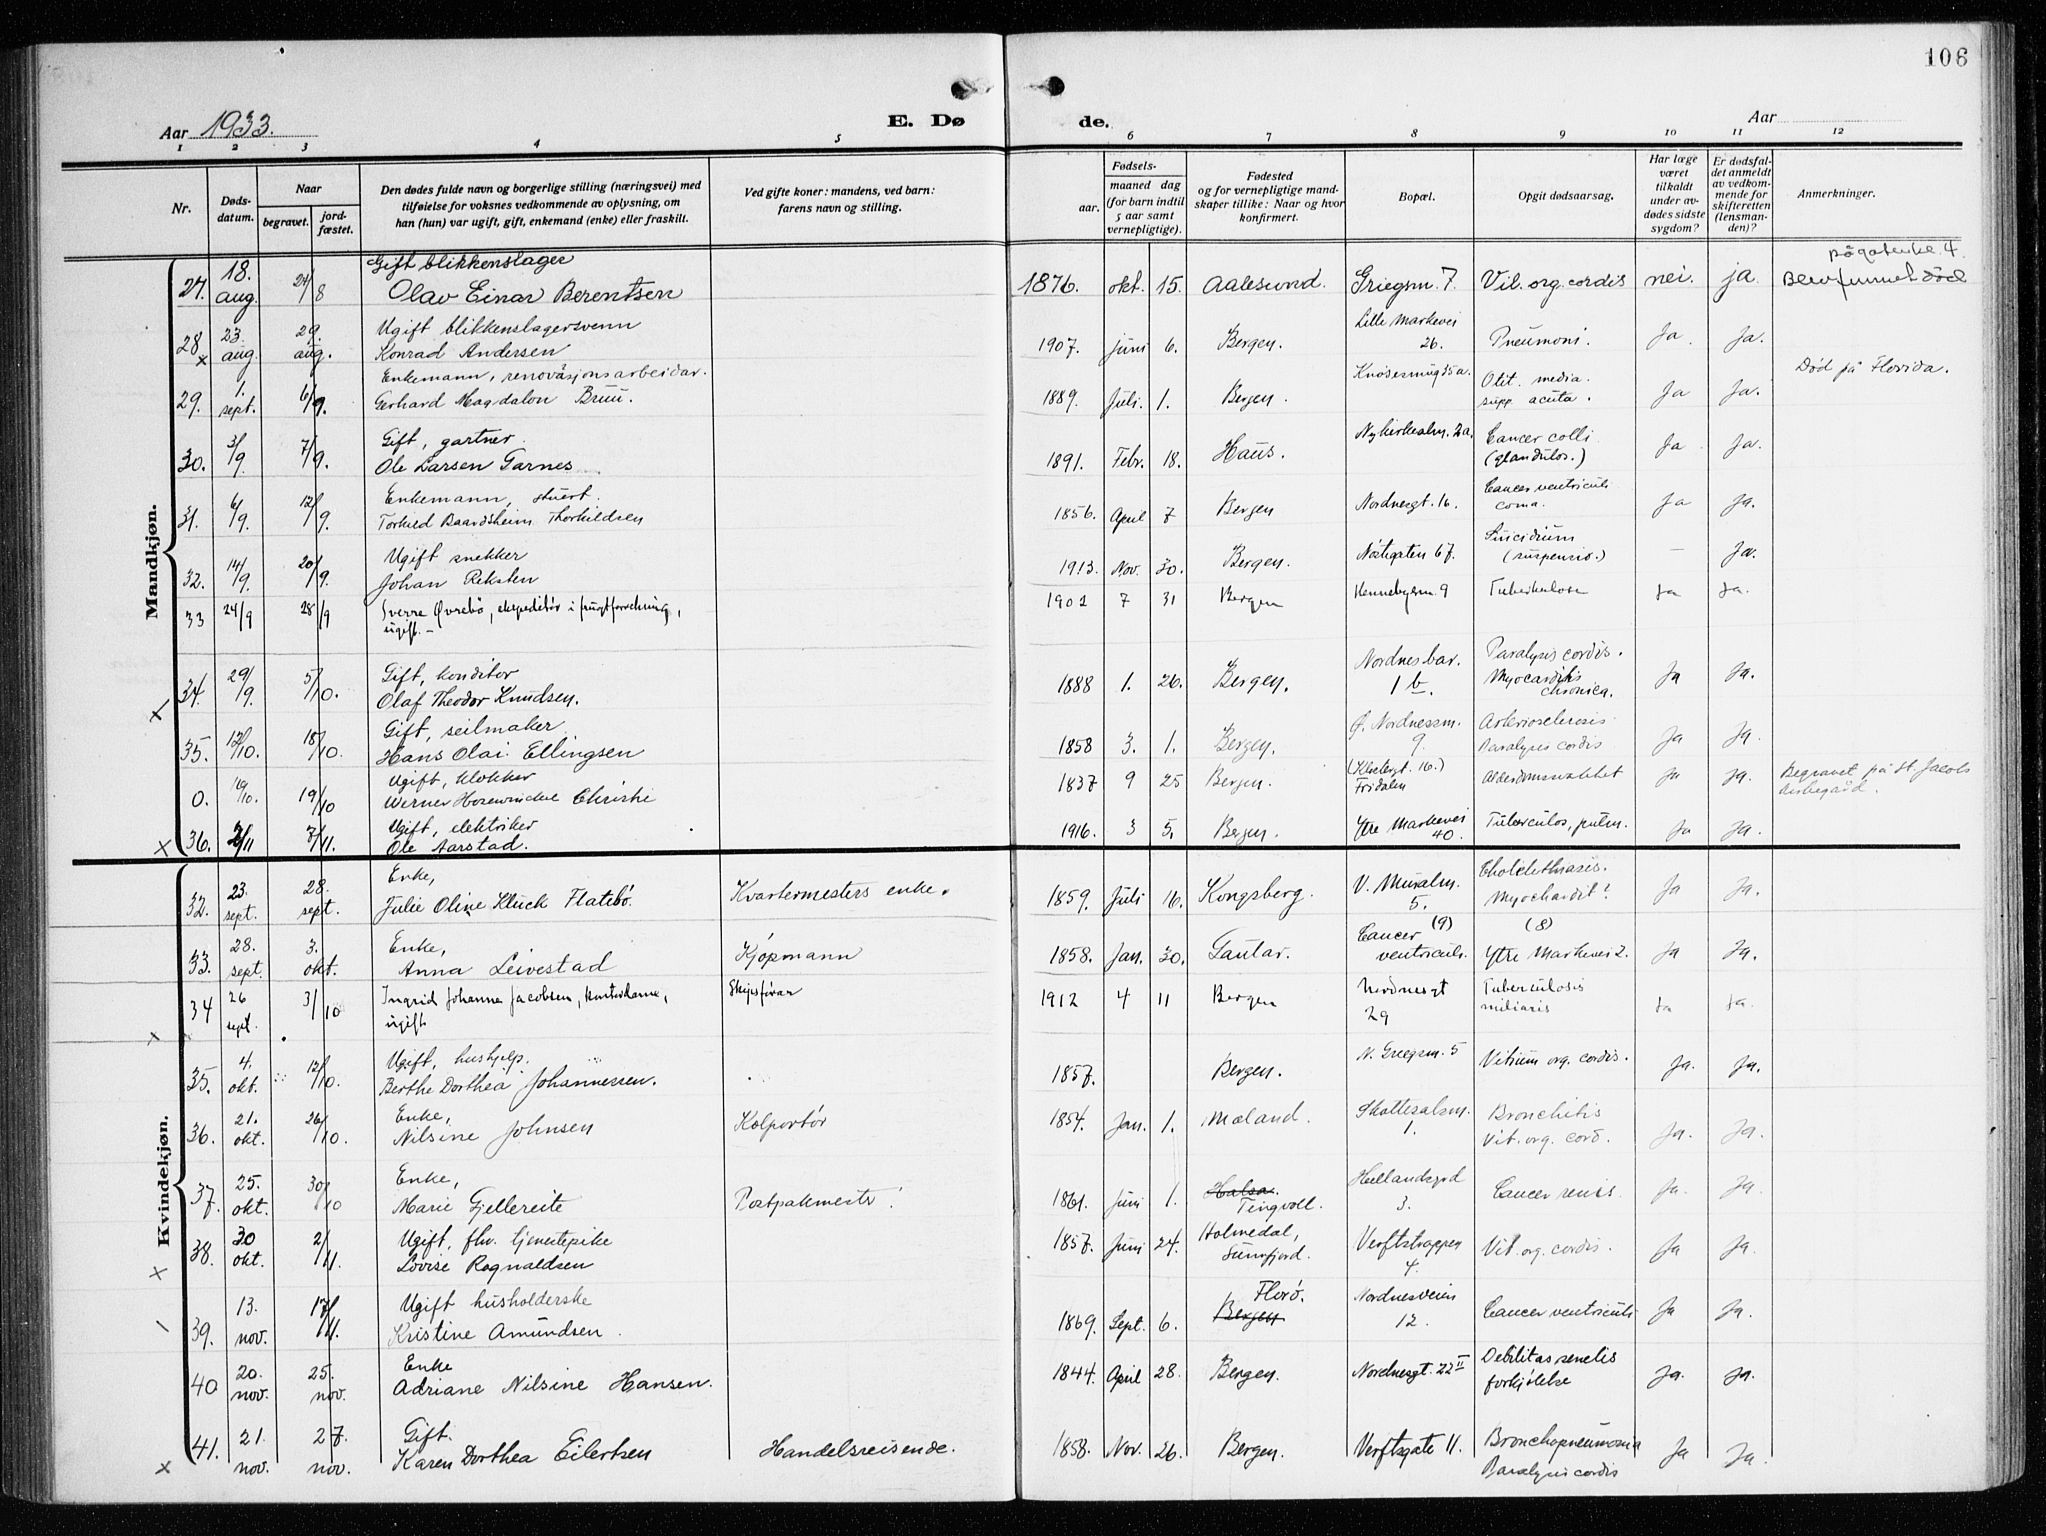 106
Aar 1933.
E. Dø
de.
Aar
1 2 3 4 5 6 7 8 9 10 11 12
Nr.
Døds-
datum.
Naar
begravet.
jord-
fæstet.
Den dødes fulde navn og borgerlige stilling (næringsvei) med
tilføielse for voksnes vedkommende av oplysning, om
han (hun) var ugift, gift, enkemand (enke) eller fraskilt.
Ved gifte koner: mandens, ved barn:
farens navn og stilling.
Fødsels-
aar.
maaned dag
(for barn indtil
5 aar samt
vernepligtige).
Fødested
og for vernepligtige mand-
skaper tillike: Naar og hvor
konfirmert.
Bopæl.
Opgit dødsaarsag.
Har læge
været
tilkaldt
under av-
dødes sidste
sygdom?
Er dødsfal-
det anmeldt
av vedkom-
mende for
skifteretten
(lensman-
den)?
Anmerkninger.
Mandkjøn.
27. 18. aug. 24/8 Gift blikkenslager
Olav Einar Berentsen 1876. okt. 15. Aalesund. Griegsm. 7. Vit. org. cordis nei. ja.
28 x 23. aug. 29. aug. Ugift blikkenslagersvenn
Konrad Andersen 1907. juni 6. Bergen. Lille Markevei 26. Pneumoni. Ja. Ja.
29. 1. sept. 6/9. Enkemann, renovasjonsarbeidar.
Gerhard Magdalon Bruu. 1889. Juli. 1. Bergen. Knøsesmug 35a. Otit. media.
supp. acuta. Ja Ja. Død på Florida.
30. 3/9. 7/9. Gift, gartner.
Ole Larsen Garnes 1891. Febr. 18. Haus. Nykirkealm. 2a. Cancer colli
(glandulos.) Ja Ja.
31. 6/9. 12/9. Enkemann, stuert.
Torkild Baardsheim Thorkildsen 1856. April 7 Bergen Nordnesgt. 16. Cancer ventriculi
coma. Ja Ja.
32. 14/9. 20/9. Ugift snekker
Johan Reksten 1913. Nov. 30. Bergen. Nøstegaten 67. Suicidium
(suspensio.) — Ja.
33 24/9 28/9 Sverre Øvrebø, ekspeditør i frugtforretning,
ugift. – 1902 7 31 Bergen Hennebysm. 9 Tuberkulose Ja Ja.
x 34. 29/9. 5/10. Gift, konditor
Olaf Theodor Knudsen. 1888 1. 26. Bergen. Nordnesbar.
1 b. Paralysis cordis.
Myocarditis
chronica. Ja Ja.
35. 12/10. 18/10. Gift, seilmaker
Hans Olai Ellingsen 1858 3. 1. Bergen. Ø. Nordnessm.
9. Arteriosclerosis
Paralysis cordis Ja Ja.
0. 14/10. 19/10 Ugift, klokker
Werner Hosewinckel Christie 1837 9 25 Bergen. (Klostergt. 16.)
Fridalen Alderdomssvakhet Ja Ja. Begravet på St. Jacobs
kirkegård.
x 36. 2/11 7/11. Ugift, elektriker
Ole Aarstad. 1916. 3 5. Bergen. Ytre Markevei
40. Tuberculos, pulm. Ja Ja.
Kvindekjøn.
32. 23. sept. 28. sept. Enke,
Julie Oline Kluck Flatebø. Kvartermesters enke. 1859. Juli 16. Kongsberg. V. Muralm.
5. Cholelithiasis.
Myochardit! Ja Ja.
33. 28. sept. 3. okt. Enke,
Anna Leivestad Kjøpmann 1858. Jan. 30. Gaular. Cancer (9)
ventriculi. (8)
Ytre Markevei 2. Ja Ja.
x 34 26 sept. 3/10 Ingrid Johanne Jacobsen, kontordame,
ugift Skipsførar 1912 4 11 Bergen Nordnesgt
29 Tuberculosis
miliaris Ja Ja.
35. 4. okt. 12/10. Ugift, hushjelp.
Berthe Dorthea Johannessen. 1857. Bergen. N. Greegsm. 5 Vitium org. cordis. Ja. Ja.
36. 21. okt. 26/10. Enke,
Nilsine Johnsen Kolportør 1854. Jan. 1. Maland. Skottesalm.
1. Bronchitis
Vit. org. cord. Ja. Ja.
37. 25. okt. 30/10 Enke,
Marie Gjellereite 1861. Juni 1. Halsa.
Tingvoll. Hellandsgrd
3. Cancer renis. Ja. Ja.
x 38. 30 okt. 2/11. Ugift, fhv. tjenestepike
Lovise Ragnaldsen 1857. Juni 24. Holmedal,
Sunnfjord. Verftstrappen
4. Vit. org. cordis. Ja Ja.
39. 13. nov. 17/11. Ugift husholderske
Kristine Amundsen 1869. Sept. 6. Florø.
Bergen Nordnesveien
12. Cancer ventriculi Ja Ja.
40 20. nov. 25. nov. Enke
Adriane Nilsine Hansen. 1844. April 28. Bergen. Nordnesgt. 22 II Debilitas senelis
forkjølelse Ja. Ja.
x 41. 21. nov. 27. nov. Gift.
Karen Dorthea Eilertsen Handelsreisende. 1858. Nov. 26. Bergen. Verftsgate 11. Bronchopneumonia
Paralysis cordis Ja Ja.